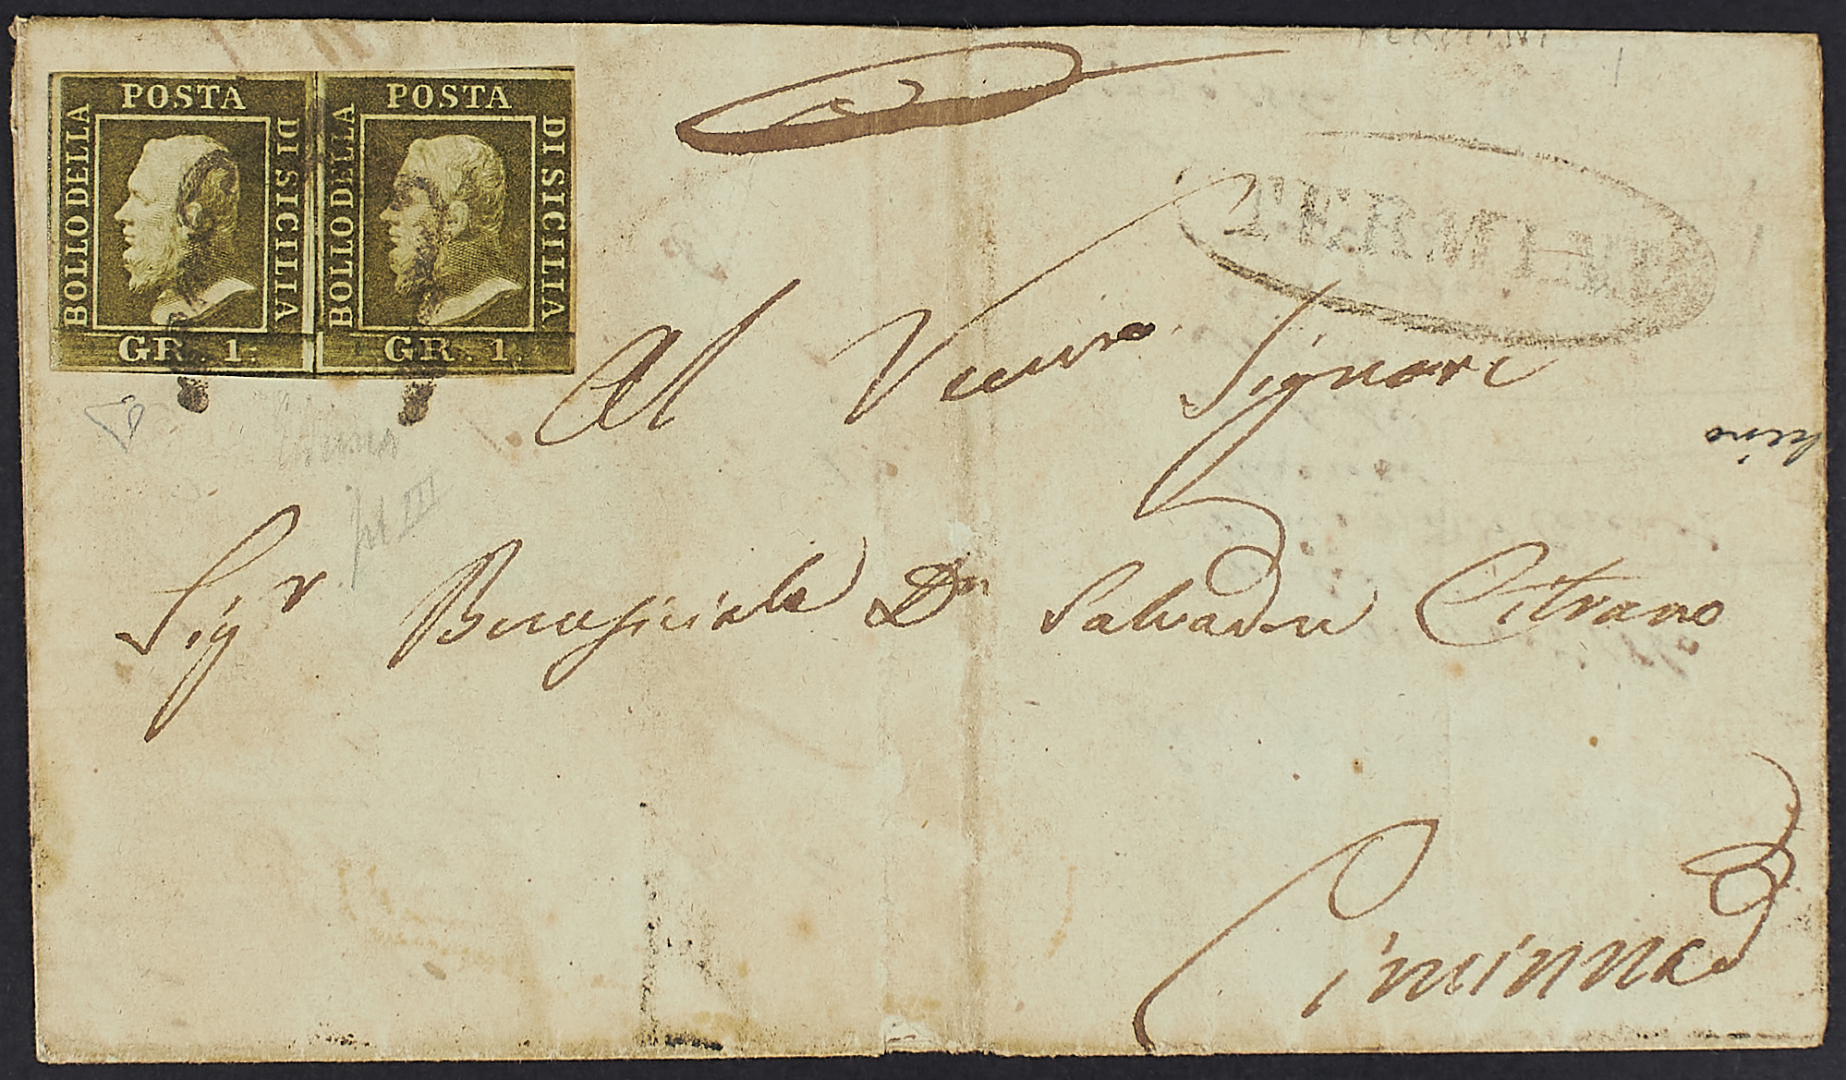 POSTA
BOLLO DELLA
DI SICILIA
GR. 1.
POSTA
BOLLO DELLA
DI SICILIA
GR. 1.
TERMINI
Al Signore
Sigr Beneficiale Dn Salvadore Citrano
Ciminna